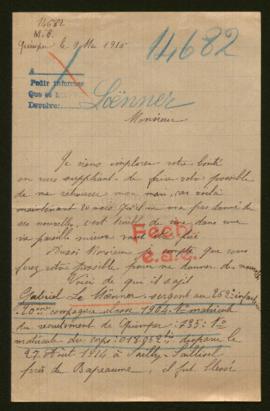 14682
M.C.
Quimper le 9 Mai 1916
14682
A
Pedir informes
Que se
Devolver
Monsieur
Je viens implorer votre bonté
en vous suppliant de faire votre possible
de me retrouver mon mari, car voilà
maintenant 20 mois qu'il ne m'a pas donné de
ses nouvelles, c'est terrible de vivre dans une
vie pareille mieux
Fech
e.a.c.
Aussi Monsieur je compte que vous
ferez votre possible pour me donner de
Voici de quoi il s'agit
Gabriel Le sergent au 262e
20me compagnie classe 1904 le matricule
du recrutement de Quimper : 835:
matricule du corps: disparu le
27 Août 1914 à Sailly-Saillisel
près de Bapaume, il fut blessé